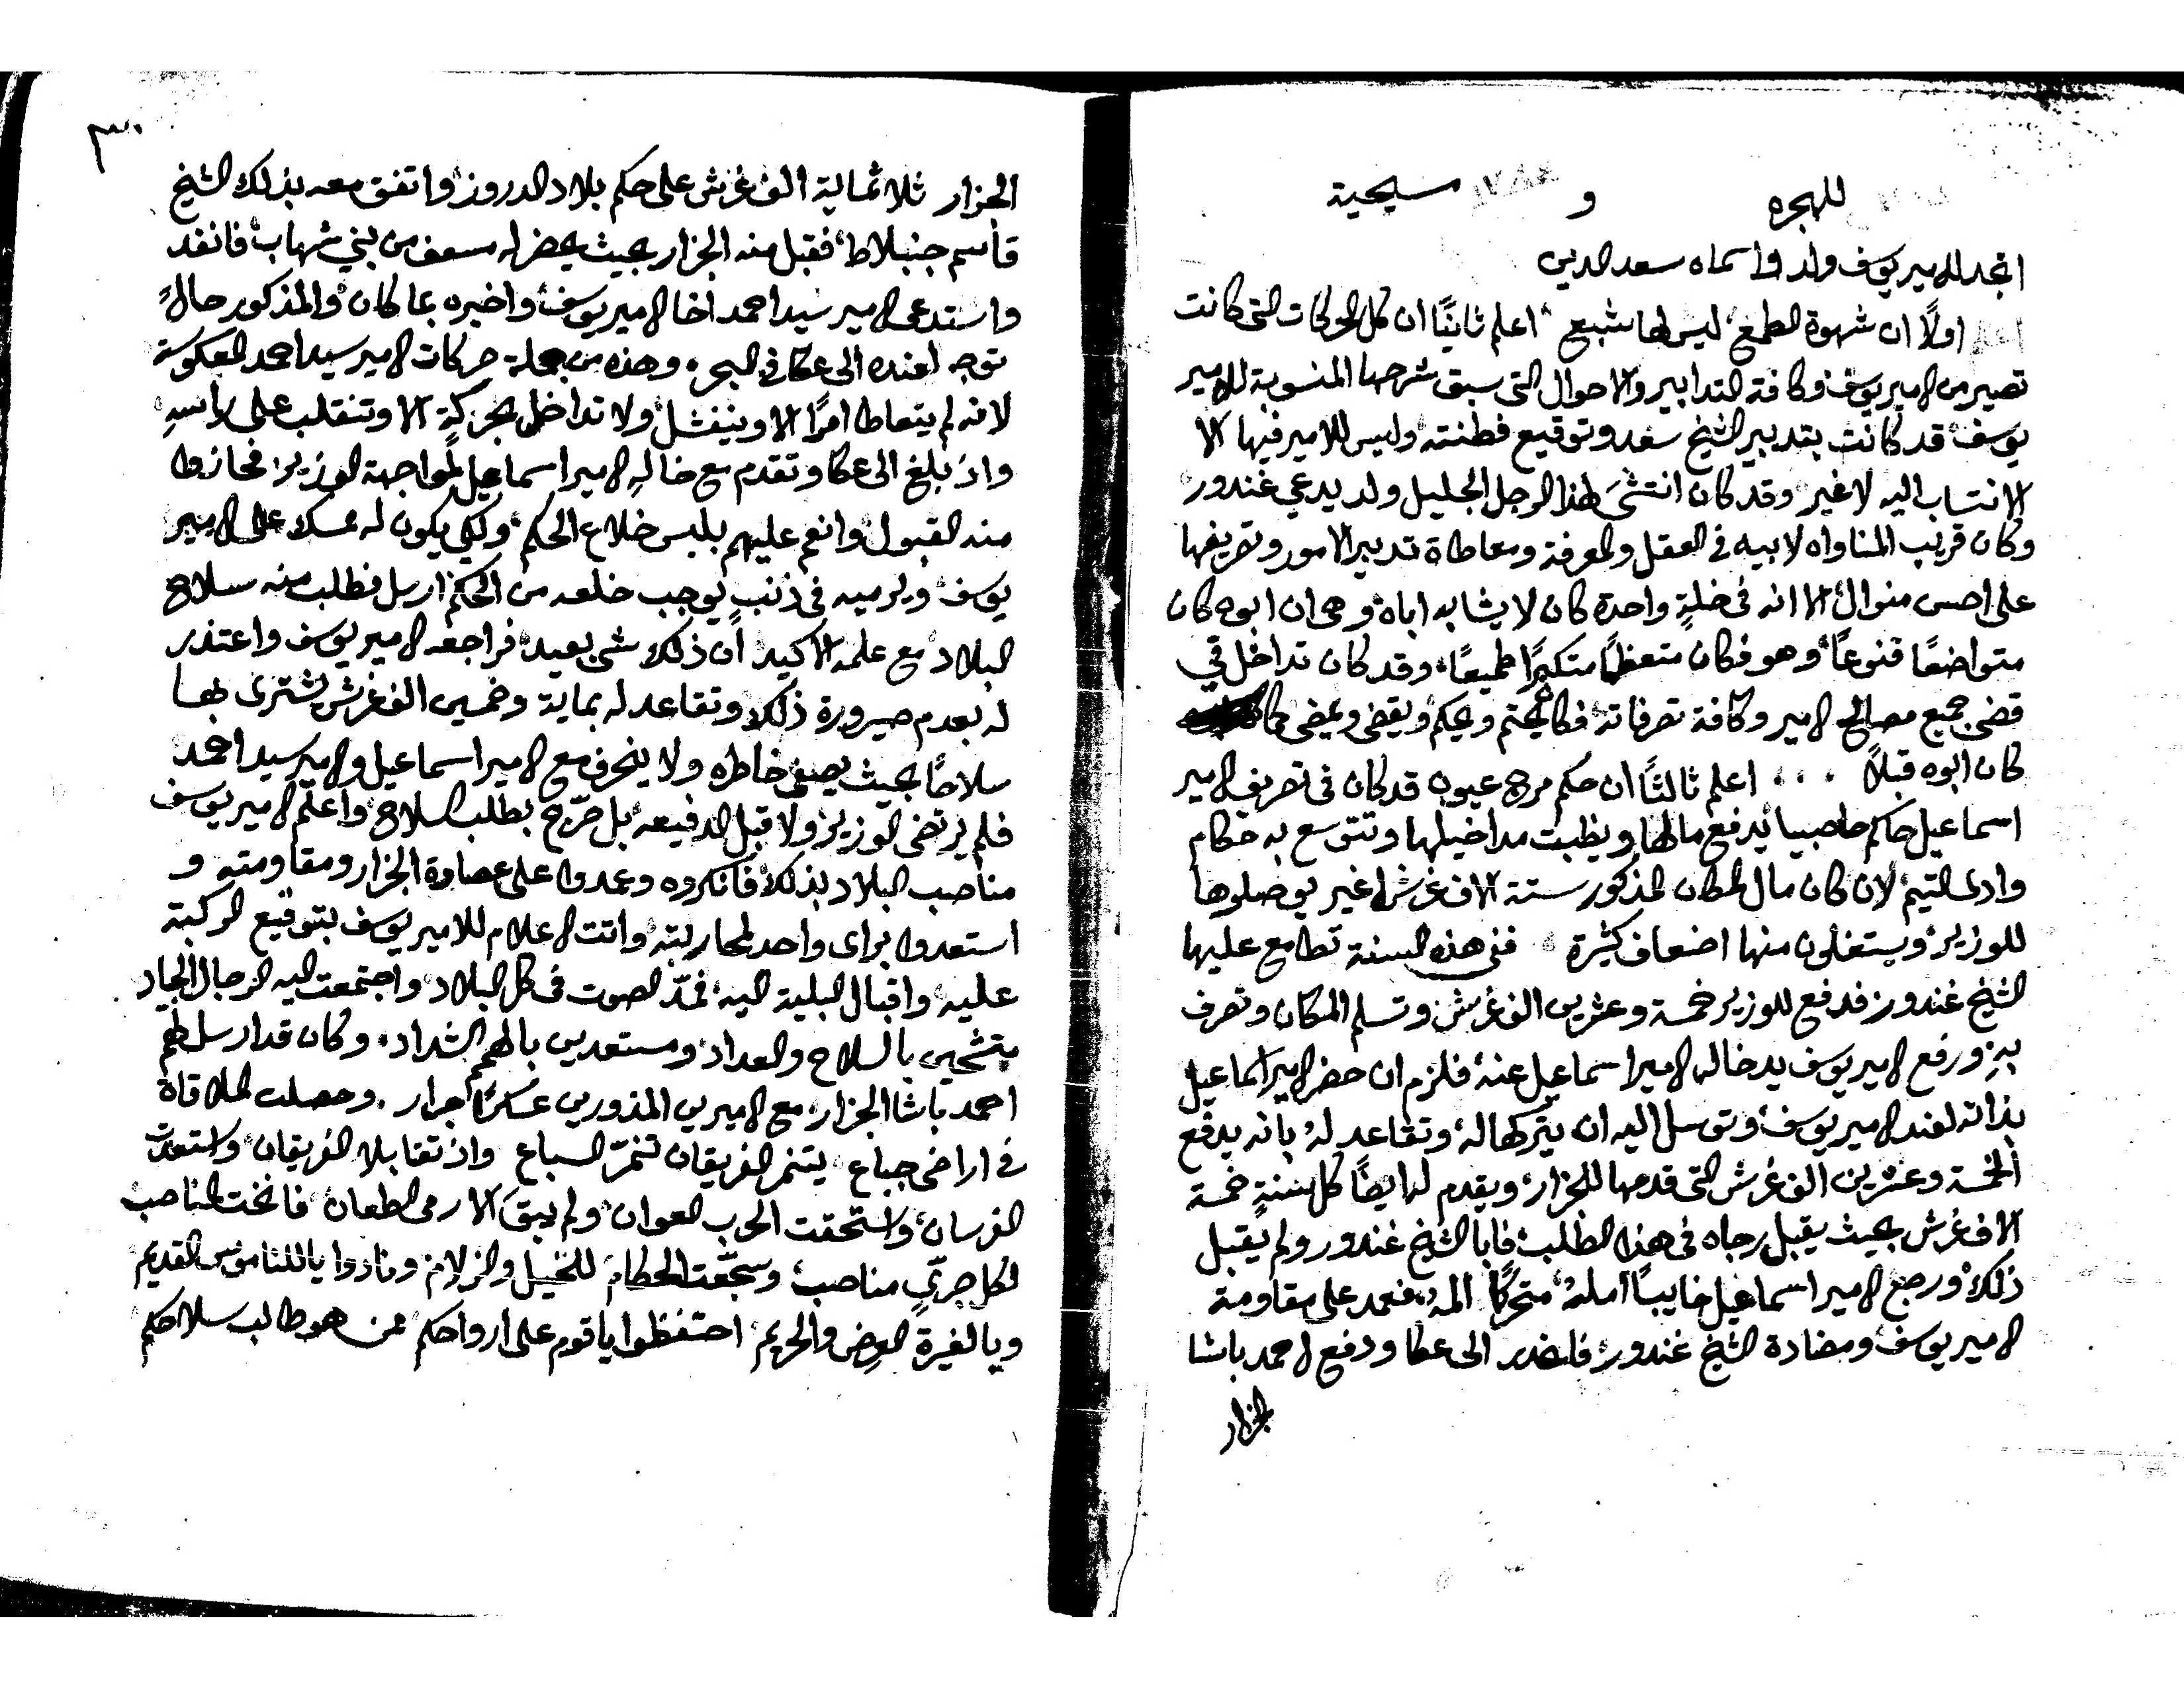 للهجره و ١٧٨٤ مسيحية
اتجد للامير يوسف ولد واسماه سعد الدين
اعلم اولًا ان شهوة الطمع ليس لها شبع اعلم ثانيًا ان كل الحركات التى كانت
تصير من الامير يوسف وكافة التدابير والاحوال التى سبق شرحها المنسوبة للامير
يوسف قد كانت بتدبير الشيخ سعد وتوقيع فطنته وليس للامير فيها الا
الانتساب اليه لا غير وقد كان انتشىَ لهذا الرجل الجليل ولد يدعى غندور
وكان قريب المناواه لابيه فى العقل والمعرفة ومعاطاة تدبير الامور وتصريفها
على احسن منوال الا انه فى خلةٍ واحدة كان لا يشابه اباه وهى ان ابوه كان
متواضعًا قنوعًا وهو فكان متعظمًا متكبرًا طميعًا وقد كان تداخل في
قضى جميع مصالح الامير وكافة تصرفاته فكان يختم ويحكم ويقضى ويمضى كما
كان ابوه قبلًا ... اعلم ثالثًا ان حكم مرج عيون قد كان فى تصريف الامير
اسماعيل حاكم حاصبيا يدفع مالها ويظبت مداخيلها وتتوسع به حكام
وادى التيم لان كان مال المكان المذكور ستة الاف غرش لا غير يوصلوها
للوزير ويستغلون منها اضعاف كثيرة ففى هذه السنة تطامع عليها
الشيخ غندور فدفع للوزير خمسة وعشرين الف غرش وتسلم المكان وتصرف
بهِ ورفع الامير يوسف يد خاله الامير اسماعيل عنه فلزم ان حضر الامير اسماعيل
بذاته لعند الامير يوسف وتوسل اليه ان يتركها له وتقاعد له بانه يدفع
الخمسة وعشرين الف غرش التى قدمها للجزار ويقدم له ايضًا كل سنةٍ خمسة
الاف غرش بحيث يقبل رجاه فى هذا الطلب فابا الشيخ غندور ولم يقبل
ذلك ورجع الامير اسماعيل خايبًا امله متحركًا المه فعمد على مقاومة
الامير يوسف ومضادة الشيخ غندور فانحدر الى عكا ودفع لاحمد باشا
الجزار
٣٠
الجزار ثلاثماية الف غرش على حكم بلاد الدروز واتفق معه بذلك الشيخ
قاسم جنبلاط فقبل منه الجزار بحيث يحضر له مسعف من بني شهاب فانفد
واستدعى الامير سيد احمد اخا الامير يوسف واخبره بما كان والمذكور حالاً
توجه لعنده الى عكا فى البحر وهذه من جملة حركات الامير سيد احمد المعكوسة
لانه لم يتعاطا امرًا الا وينفشل ولا تداخل بحركةٍ الا وتنقلب على راسهِ
واذ بلغ الى عكا وتقدم مع خالهِ الامير اسماعيل لمواجهة الوزير فحازوا
منه القبول وانعم عليهم بلبس خلاع الحكم ولكي يكون له تمسك على الامير
يوسف ويرميه فى ذنبٍ يوجب خلعه من الحكم ارسل فطلب منه سلاح
البلاد مع علمه الاكيد ان ذلك شى بعيد فراجعه الامير يوسف واعتذر
له بعدم صيرورة ذلك وتقاعد له بماية وخمسين الف غرش يشترى بها
سلاحًا بحيث يصفى خاطره ولا ينحرف مع الامير اسماعيل والامير سيد احمد
فلم يرتضى الوزير ولا قبل الدفيعه بل حرّج بطلب السلاح واعلم الامير يوسف
مناصب البلاد بذلك فانكروه وعمدوا على عصاوة الجزار ومقاومته و
استعدوا براى واحد لمحاربته واتت الاعلام للامير يوسف بتوقيع الركبة
عليه واقبال البلية اليه فمدّ الصوت فى كل البلاد واجتمعت اليه الرجال الجياد
متشحين بالسلاح والعداد ومستعدين بالهمم الشداد وكان قد ارسل لهم
احمد باشا الجزار مع الاميرين المذورين عسكرًا جرار وحصلت الملاقاة
فى اراضى جباع يتنمر الفريقان تنمرّ السباع واذ تقابلا الفريقان واستعدت
الفرسان واستحقت الحرب العوان ولم يبقَ الا رمى الطعان فانتخت المناصب
لكل جرىّ مناصب وسجّعت الحطام للخيل والزلام ونادوا ياللناموس القديم
ويالغيرة العرض والحريم احتفظوا يا قوم على ارواحكم ممن هو طالب سلاحكم